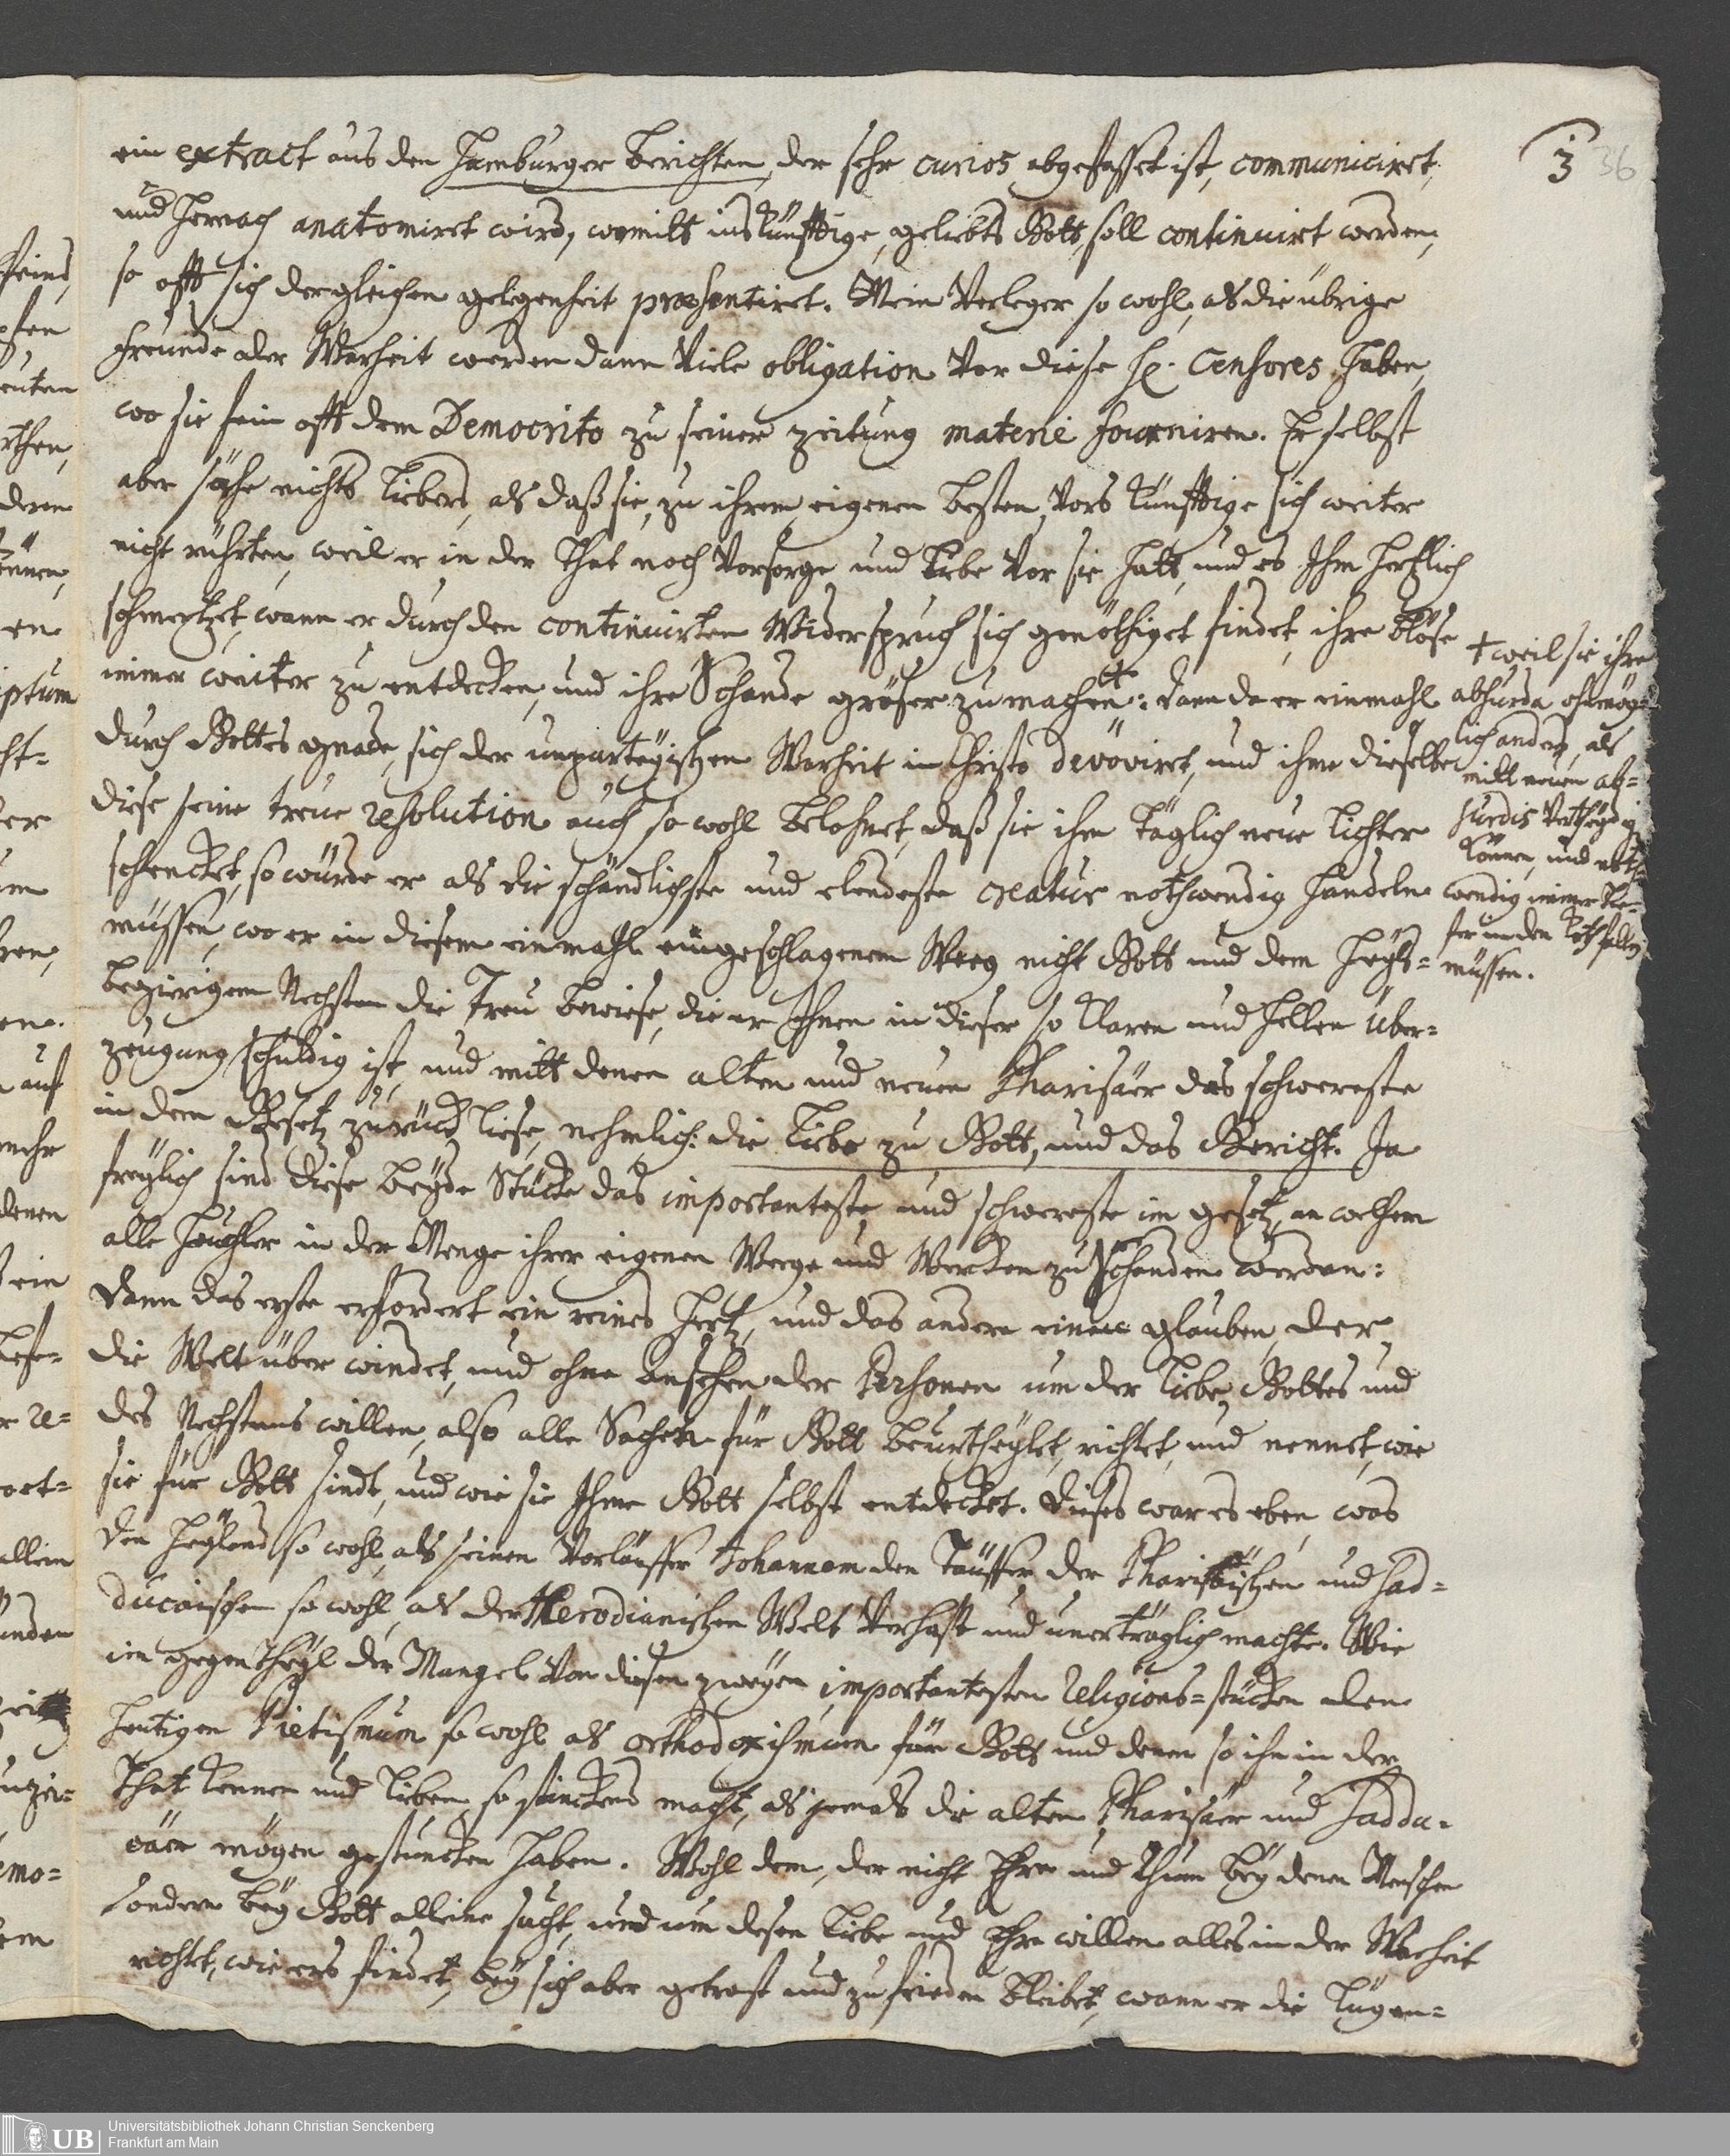 3 36
ein extract aus den Hamburger Berichten, der sehr curios abgefasset ist, communiciret,
und hernach anatomiret wird, womitt ins künfftige, geliebts Gott, soll continuirt werden,
so offt sich dergleichen gelegenheit præsentiret. Mein Verleger so wohl, als die übrige
freunde der Warheit werden dann viele obligation vor diese H. Censores haben,
wo sie fein offt dem Democrito zu seiner zeitung materie fourniren. Er selbst
aber sähe nichts liebers, als daß sie, zu ihrem eigenen besten, vors künfftige sich weiter
nicht rührten, weil er in der That noch Vorsorge und Liebe vor sie hatt, und es Ihm hertzlich
schmertzet, wann er durch den continuirten Widerspruch sich genöthiget findet, ihre blöse
immer weiter zu entdecken, und ihre Schande gröser zu machen †: dann da er einmahl
durch Gottes gnade, sich der unpartheyischen Warheit in Christo devoviret, und ihme dieselbe
diese seine treue resolution auch so wohl belohnet, daß sie ihm täglich neue Lichter
schencket, so würde er als die schändlichste und elendeste creatur nothwendig handeln
müssen, wo er in diesem einmahl eingeschlagenem Weeg nicht Gott und dem Heyls=
begierigem Nechsten die Treu bewiese, die er Ihnen in dieser so klaren und hellen über=
zeugung schuldig ist, und mitt denen alten und neuen Pharisäer das schwereste
in dem Gesetz zurück liese, nehmlich: die Liebe zu Gott, und das Gericht. Ja
freylich sind diese beyde Stücke das importanteste und schwereste im gesetz, an welchem
alle Heuchler in der Menge ihrer eigenen Weege und Wercken zu schanden werden:
Dann das erste erfordert ein reines Hertz, und das andere einen glauben, der
die Welt überwindet, und ohne ansehen der Personen um der Liebe Gottes und
des Nechstens willen, also alle Sachen für Gott beurtheylet, richtet, und nennet, wie
sie für Gott sindt, und wie sie Ihme Gott selbst entdecket. Dieses war es eben, was
den Heyland so wohl, als seinen Vorläuffer Johannem den Täuffer der Pharisäischen und Sad=
ducaischen so wohl, als der Herodianischen Welt verhast und unerträglich machte. Wie
im gegentheyl der Mangel von diesen zweyen importantesten Religions=stücken den
heutigen Pietismum so wohl als orthodoxismum für Gott und denen so ihn in der
That kennen und lieben, so stinckend macht, als jemals die alten Pharisäer und Saddu=
cäer mögen gestuncken haben. Wohl dem, der nicht Ehre und Ruhm bey denen Menschen
sondern bey Gott alleine sucht, und um desen Liebe und Ehre willen alles in der Warheit
richtet, wie ers findet, bey sich aber getrost und zu frieden bleibet, wann er die Lügen=
† weil sie ihre
absurda ohnmög=
lich anders, als
mitt neuen ab=
surdis vertheydigen
können, und noth=
wendig immer tie=
fer in den Koth fallen
müssen.
UB
Universitätsbibliothek Johann Christian Senckenberg
Frankfurt am Main